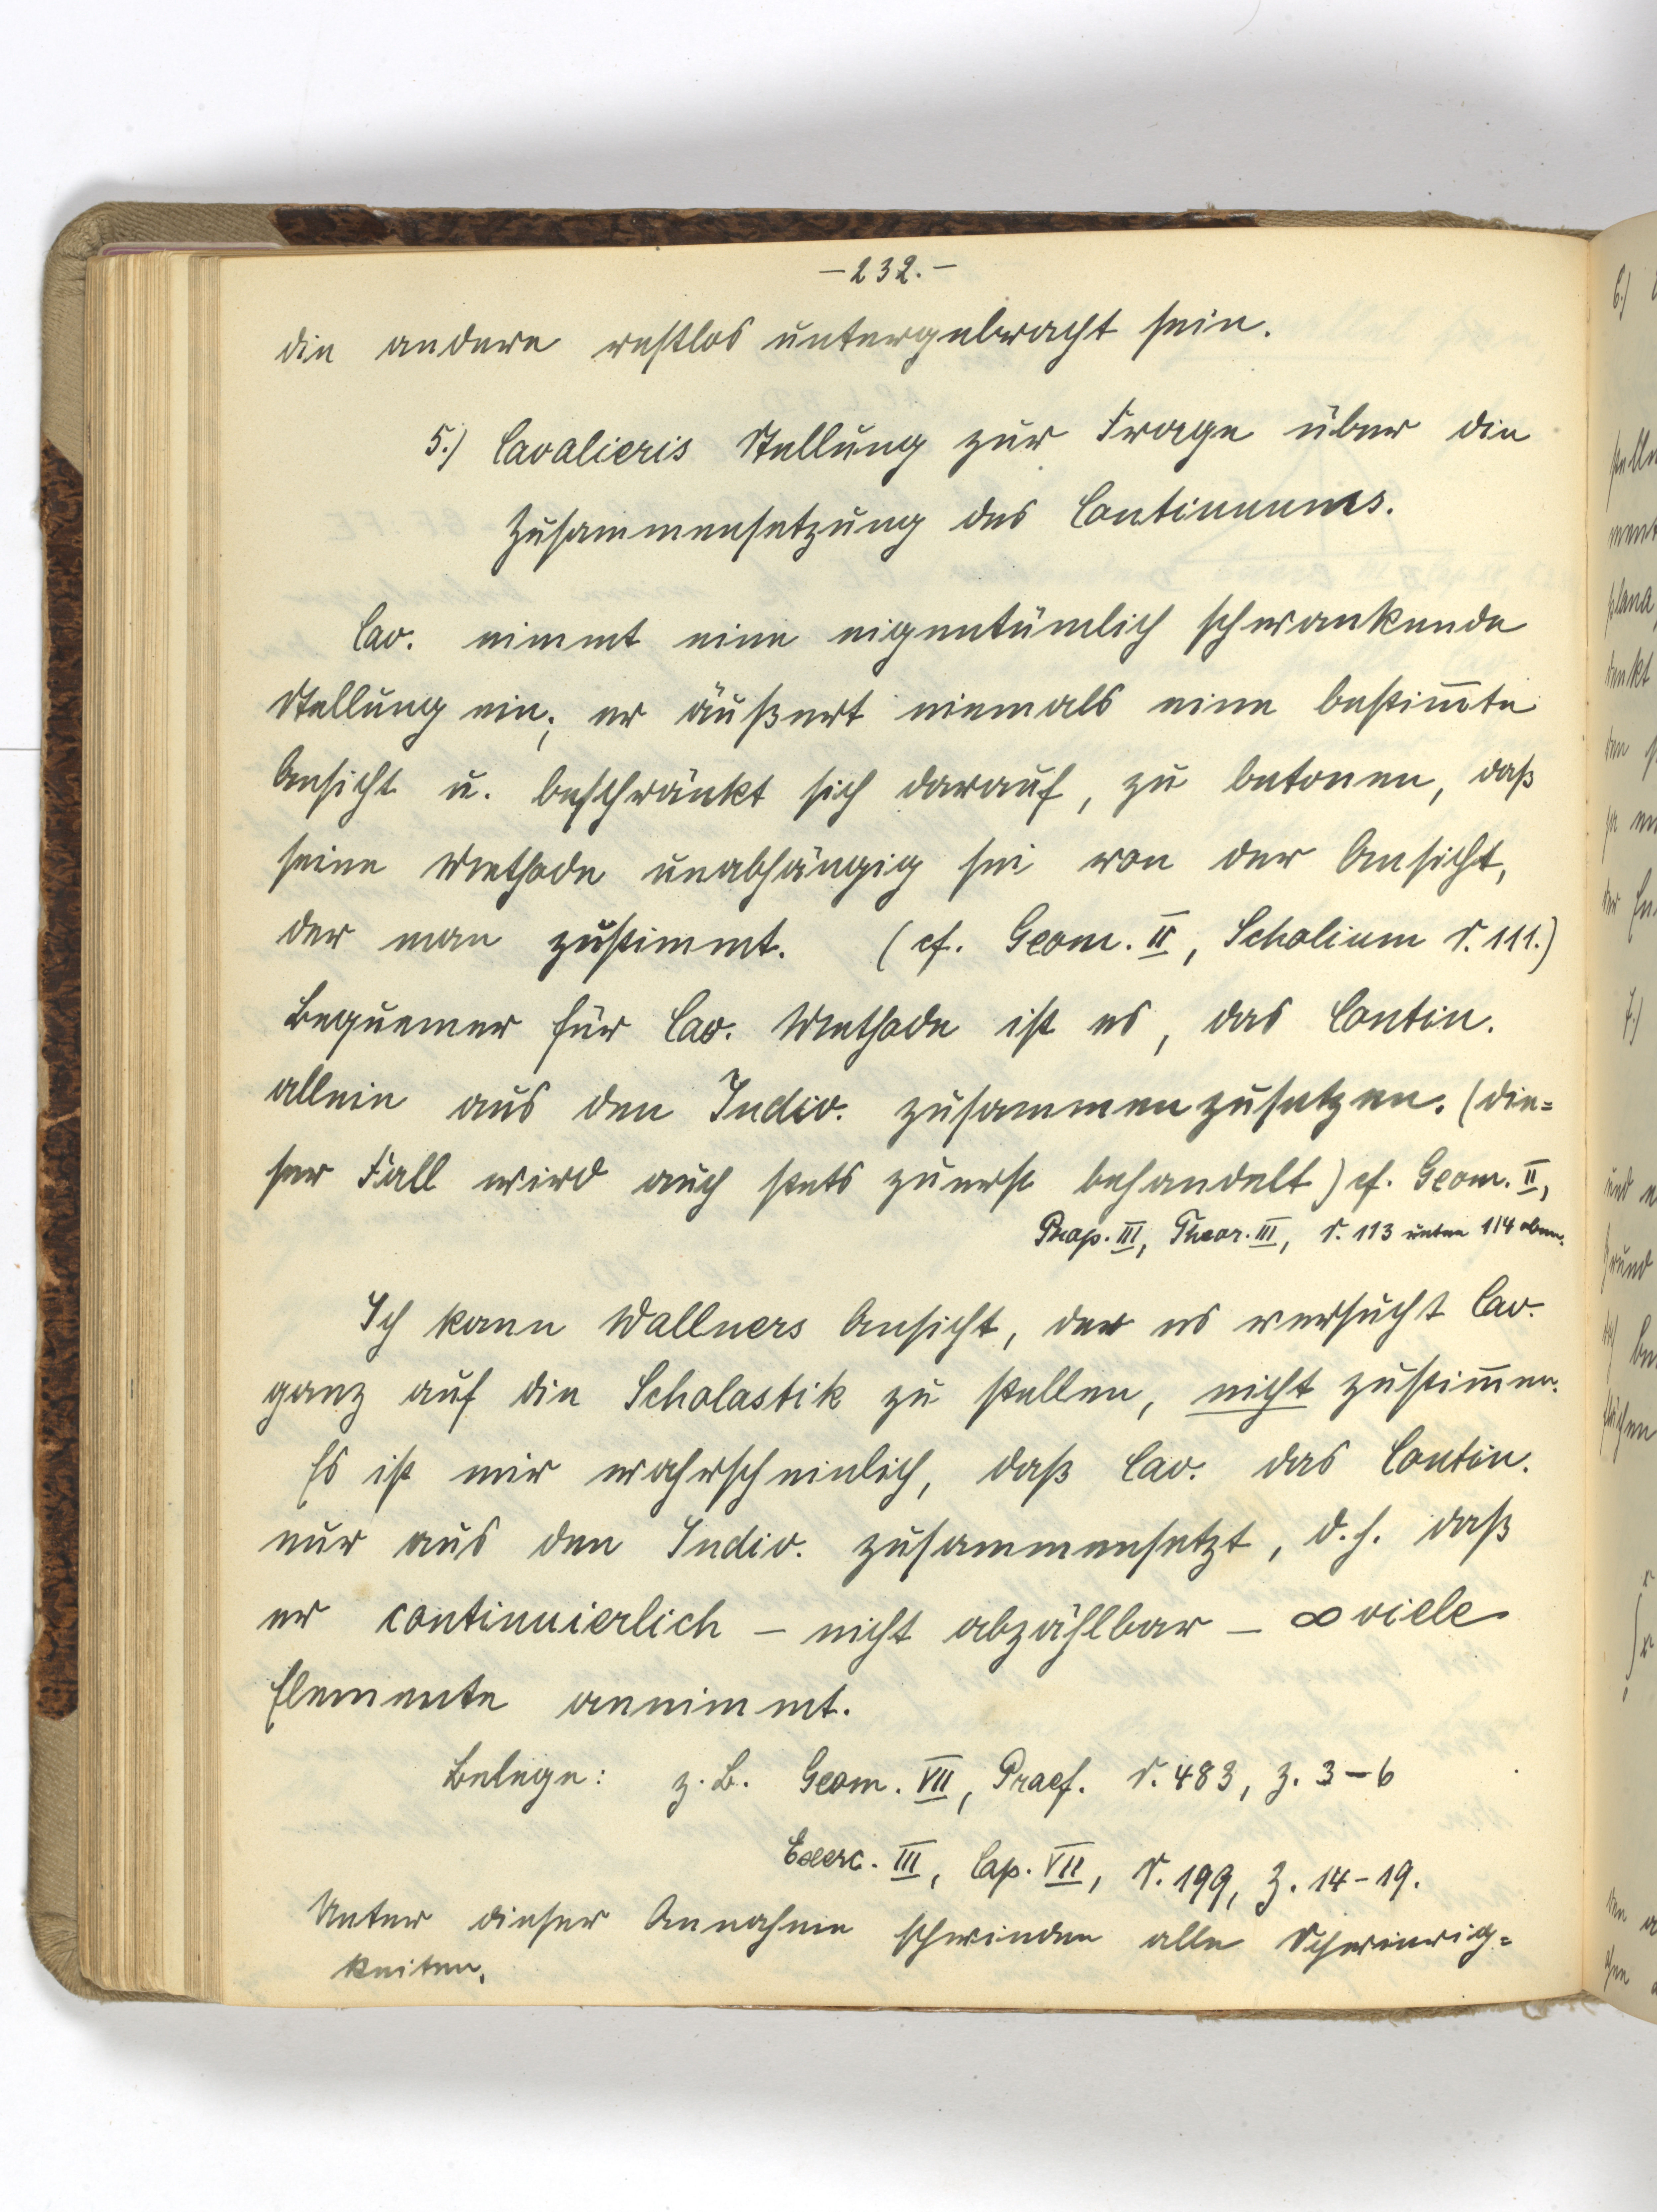 -232.-
die andere restlos untergebracht sein.
5.) Cavalieris Stellung zur Frage über die
Zusammensetzung des Continuums.
Cav. nimmt eine eigentümlich schwankende
Stellung ein; er äußert niemals eine bestim̅te
Ansicht u. beschränkt sich darauf, zu betonen, daß
seine Methode unabhängig sei von der Ansicht,
der man zustimmt. (cf. Geom. II, Scholium S. 111.)
Bequemer für Cav. Methode ist es, das Contin.
allein aus den Indiv. zusammenzusetzen. (die=
ser Fall wird auch stets zuerst behandelt) cf. Geom. II,
Prop. III, Theor. III, S. 113 unten 114 oben.
Ich kann Wallners Ansicht, der es versucht Cav.
ganz auf die Scholastik zu stellen, nicht zustim̅en.
Es ist mir wahrscheinlich, daß Cav. das Contin.
nur aus den Indiv. zusammensetzt, d.h. daß
er continuierlich - nicht abzählbar - ∞ viele
Elemente annimmt.
Belege: z.B. Geom. VII, Praef. S. 483, Z. 3-6
Exerc. III, Cap. VII, S. 199, Z. 14-19.
Unter dieser Annahme schwinden alle Schwierig=
keiten.